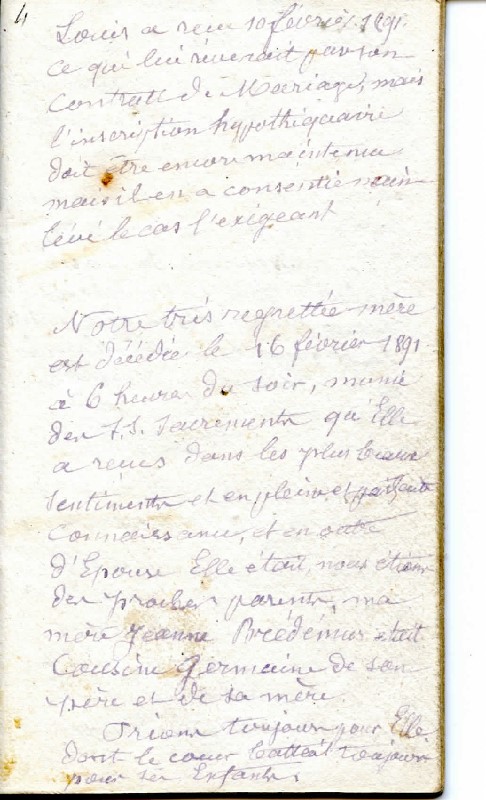 4
Louis a reçu 10 février 1891.
ce qui lui revenait par son
Contrat de Mariage, mais
l'inscription hypothéquaire
doit être encore maintenue
mais il en a consentie main
levée le cas l'exigeant
Notre très regrettée mère
est décédée le 16 février 1891
à 6 heures du soir, munie
des S.S. Sacrements qu'Elle
a reçus dans les plus beaux
sentiments et en pleine et parfaite
connaissance, et en outre
d'Epouse Elle était, nous étions
des proches parents, ma
mère Jeanne Brédémus était
Cousine Germaine de son
père et de sa mère
Prions toujours pour Elle
dont le coeur battait toujours
pour ses Enfants.